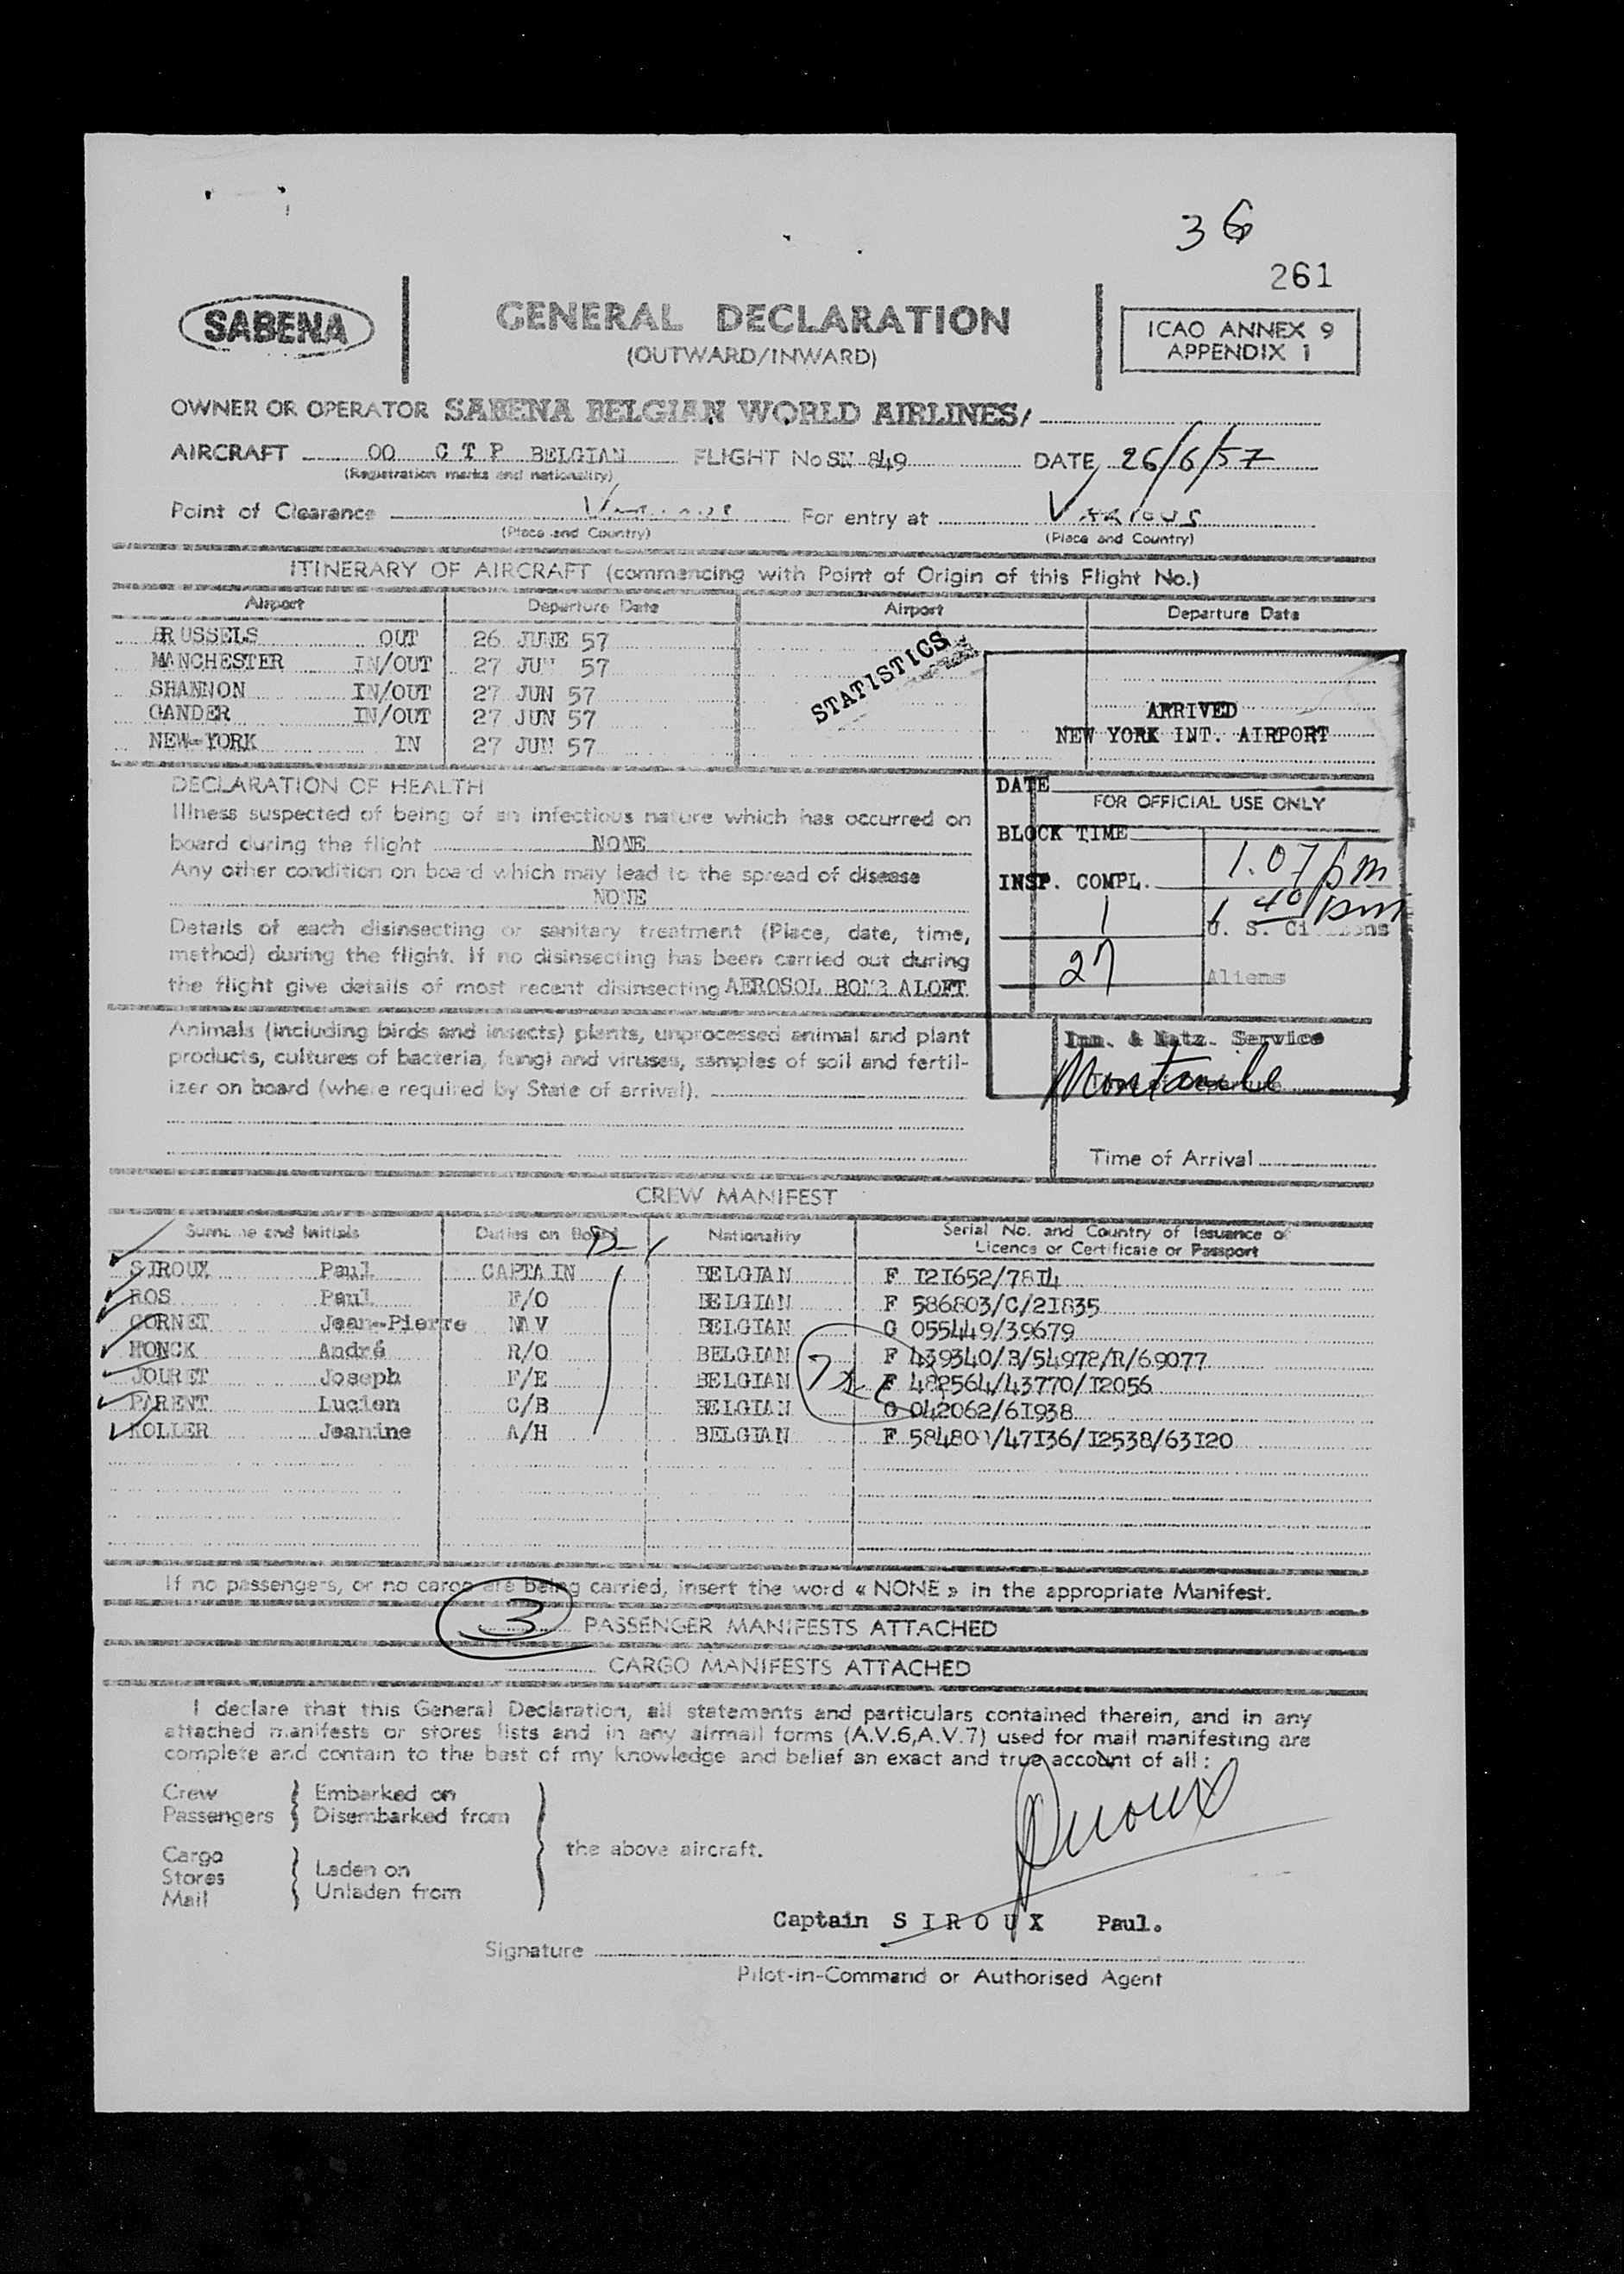 36
261
SABENA
GENERAL DECLARATION
(OUTWARD/INWARD)
ICAO ANNEX 9
APPENDIX 1
OWNER OR OPERATOR SABENA BELGIAN WORLD AIRLINES/
AIRCRAFT OO C T P BELGIAN FLIGHT No SN 849 DATE 26/6/57
(Registration marks and nationality)
Point of Clearance Various For entry at Various
(Place and Country) (Place and Country)
ITINERARY OF AIRCRAFT (commencing with Point of Origin of this Flight No.)
Airport Departure Date Airport Departure Date
BRUSSELS OUT 26 JUNE 57
MANCHESTER IN/OUT 27 JUN 57
SHANNON IN/OUT 27 JUN 57
GANDER IN/OUT 27 JUN 57
NEW-YORK IN 27 JUN 57
STATISTICS
ARRIVED
NEW YORK INT. AIRPORT
DATE
FOR OFFICIAL USE ONLY
BLOCK TIME 1.07 pm
INSP. COMPL. 1 40 pm
1 U. S. Citizens
27 Aliens
Imm. & Natz. Service
Time of Departure
Time of Arrival
DECLARATION OF HEALTH
Illness suspected of being of an infectious nature which has occurred on
board during the flight NONE
Any other condition on board which may lead to the spread of disease
NONE
Details of each disinsecting or sanitary treatment (Place, date, time,
method) during the flight. If no disinsecting has been carried out during
the flight give details of most recent disinsecting AEROSOL BOMB ALOFT
Animals (including birds and insects) plants, unprocessed animal and plant
products, cultures of bacteria, fungi and viruses, samples of soil and fertil-
izer on board (where required by State of arrival).
CREW MANIFEST
Surname and Initials Duties on Board Nationality Serial No. and Country of Issuance of
Licence or Certificate or Passport
SIROUX Paul CAPTAIN BELGIAN F I2I652/78I4
ROS Paul F/O BELGIAN F 586803/C/2I835
CORNET Jean-Pierre NAV BELGIAN G 055449/39679
HONCK André R/O BELGIAN F 439340/B/54978/R/69077
JOURET Joseph F/E BELGIAN F 482564/43770/I2056
PARENT Lucien C/B BELGIAN G 042062/6I938
KOLLER Jeanine A/H BELGIAN F 58480 /47I36/I2538/63I20
If no passengers, or no cargo are being carried, insert the word « NONE » in the appropriate Manifest.
3 PASSENGER MANIFESTS ATTACHED
CARGO MANIFESTS ATTACHED
I declare that this General Declaration, all statements and particulars contained therein, and in any
attached manifests or stores lists and in any airmail forms (A.V.6,A.V.7) used for mail manifesting are
complete and contain to the best of my knowledge and belief an exact and true account of all :
Crew Embarked on
Passengers Disembarked from
the above aircraft.
Cargo
Stores Laden on
Mail Unladen from
Siroux
Captain SIROUX Paul.
Signature
Pilot-in-Command or Authorised Agent